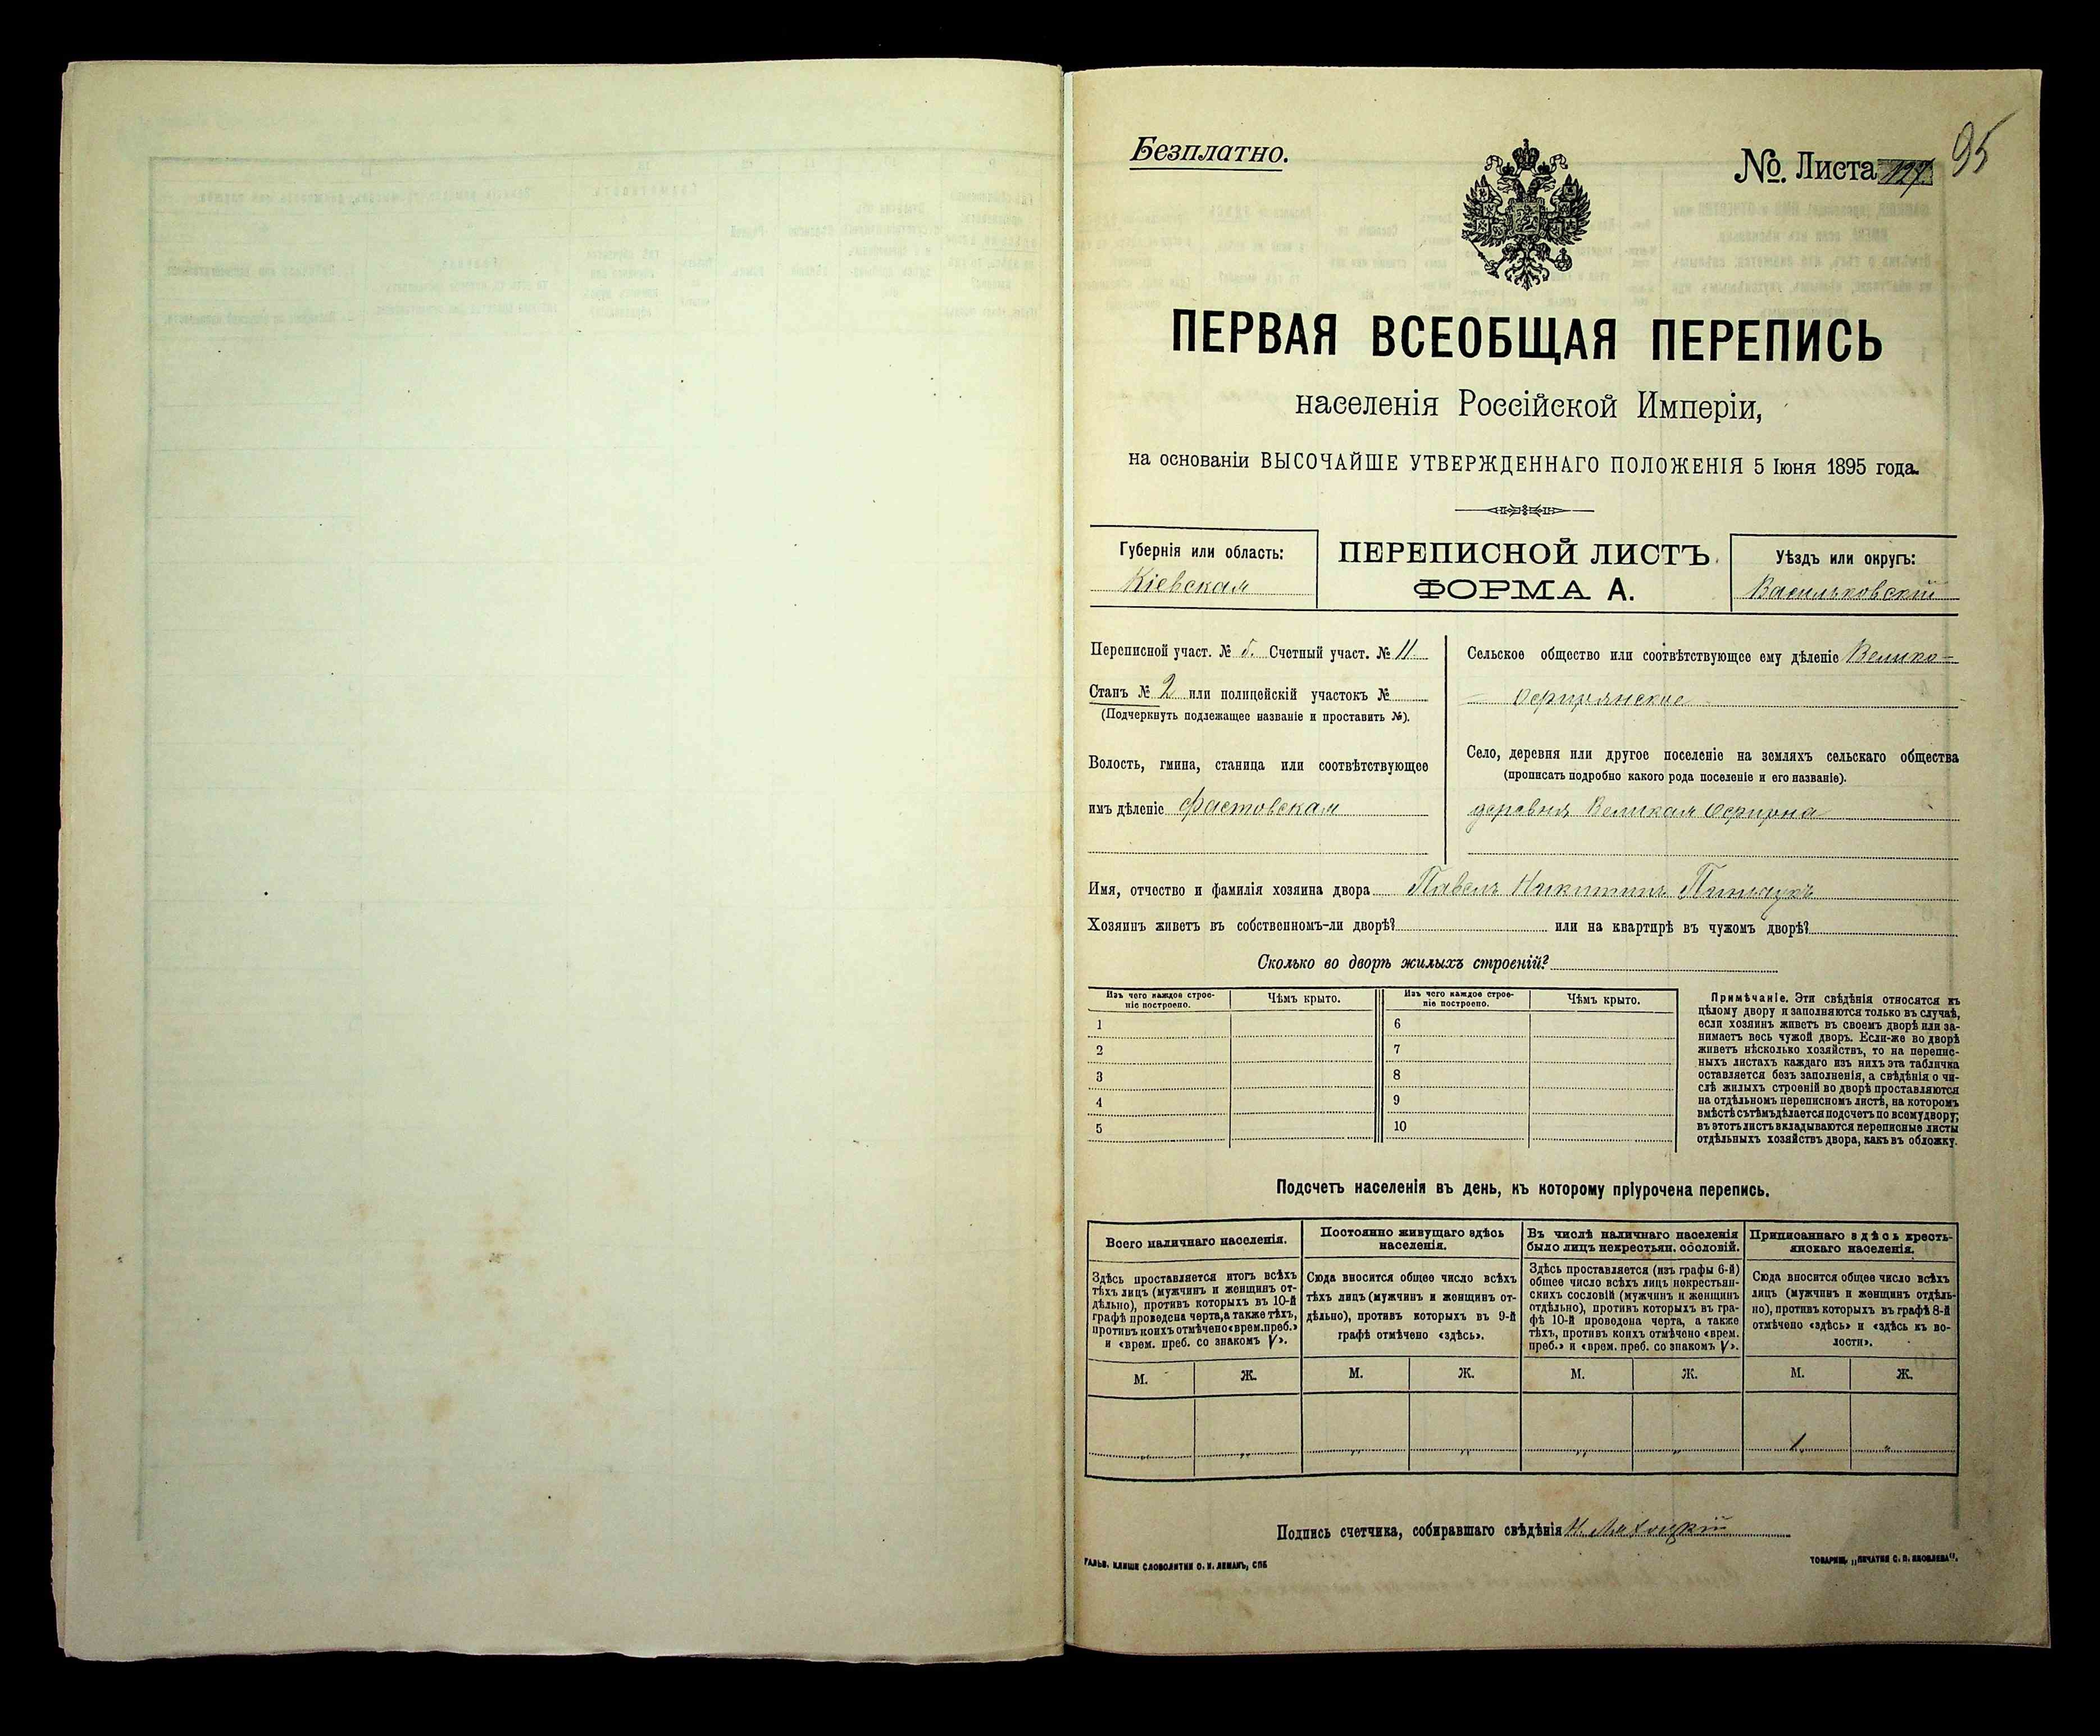 Безплатно.
№. Листа 127. 95
ПЕРВАЯ ВСЕОБЩАЯ ПЕРЕПИСЬ
населенія Россійской Имперіи,
на основаніи ВЫСОЧАЙШЕ УТВЕРЖДЕННАГО ПОЛОЖЕНІЯ 5 Іюня 1895 года.
Губернія или область:
Кіевская
ПЕРЕПИСНОЙ ЛИСТЪ
ФОРМА А.
Уѣздъ или округъ:
Васильковскій
Переписной участ. № 5. Счетный участ. № 11
Станъ № 2 или полицейскій участокъ №
(Подчеркнуть подлежащее названіе и проставить №).
Волость, гмина, станица или соотвѣтствующее
имъ дѣленіе Фастовская
Сельское общество или соотвѣтствующее ему дѣленіе Велико-
- Офирнянское
Село, деревня или другое поселеніе на земляхъ сельскаго общества
(прописать подробно какого рода поселеніе и его названіе).
деревня Великая Офирна
Имя, отчество и фамилія хозяина двора Павелъ Никитинъ
Хозяинъ живетъ въ собственномъ-ли дворѣ? или на квартирѣ въ чужомъ дворѣ?
Сколько во дворѣ жилыхъ строеній?
Изъ чего каждое строе-
ніе построено.
Чѣмъ крыто.
Изъ чего каждое строе-
ніе построено.
Чѣмъ крыто.
1 6
2 7
3 8
4 9
5 10
Примѣчаніе. Эти свѣдѣнія относятся къ
цѣлому двору и заполняются только въ случаѣ,
если хозяинъ живетъ въ своемъ дворѣ или за-
нимаетъ весь чужой дворъ. Если-же во дворѣ
живетъ нѣсколько хозяйствъ, то на перепис-
ныхъ листахъ каждаго изъ нихъ эта табличка
оставляется безъ заполненія, а свѣдѣнія о чи-
слѣ жилыхъ строеній во дворѣ проставляются
на отдѣльномъ переписномъ листѣ, на которомъ
вмѣстѣ съ тѣмъ дѣлается подсчетъ по всему двору;
въ этотъ листъ вкладываются переписные листы
отдѣльныхъ хозяйствъ двора, какъ въ обложку.
Подсчетъ населенія въ день, къ которому пріурочена перепись.
Всего наличнаго населенія.
Здѣсь проставляется итогъ всѣхъ
тѣхъ лицъ (мужчинъ и женщинъ от-
дѣльно), противъ которыхъ въ 10-й
графѣ проведена черта, а также тѣхъ,
противъ коихъ отмѣчено «врем. преб.»
и «врем. преб. со знакомъ V».
Постоянно живущаго здѣсь
населенія.
Сюда вносится общее число всѣхъ
тѣхъ лицъ (мужчинъ и женщинъ от-
дѣльно), противъ которыхъ въ 9-й
графѣ отмѣчено «здѣсь».
Въ числѣ наличнаго населенія
было лицъ некрестьян. сословій.
Здѣсь проставляется (изъ графы 6-й)
общее число всѣхъ лицъ некрестьян-
скихъ сословій (мужчинъ и женщинъ
отдѣльно), противъ которыхъ въ гра-
фѣ 10-й проведена черта, а также
тѣхъ, противъ коихъ отмѣчено «врем.
преб.» и «врем. преб. со знакомъ V».
Приписаннаго здѣсь кресть-
янскаго населенія.
Сюда вносится общее число всѣхъ
лицъ (мужчинъ и женщинъ отдѣль-
но), противъ которыхъ въ графѣ 8-й
отмѣчено «здѣсь» и «здѣсь къ во-
лости».
М. Ж. М. Ж. М. Ж. М. Ж.
„ „ „ „ „ „ 1 „
Подпись счетчика, собиравшаго свѣдѣнія
ГАЛЬВ. КЛИШЕ СЛОВОЛИТНИ О. И. ЛЕМАНЪ, СПБ
ТОВАРИЩ. „ПЕЧАТНЯ С. П. ЯКОВЛЕВА“.